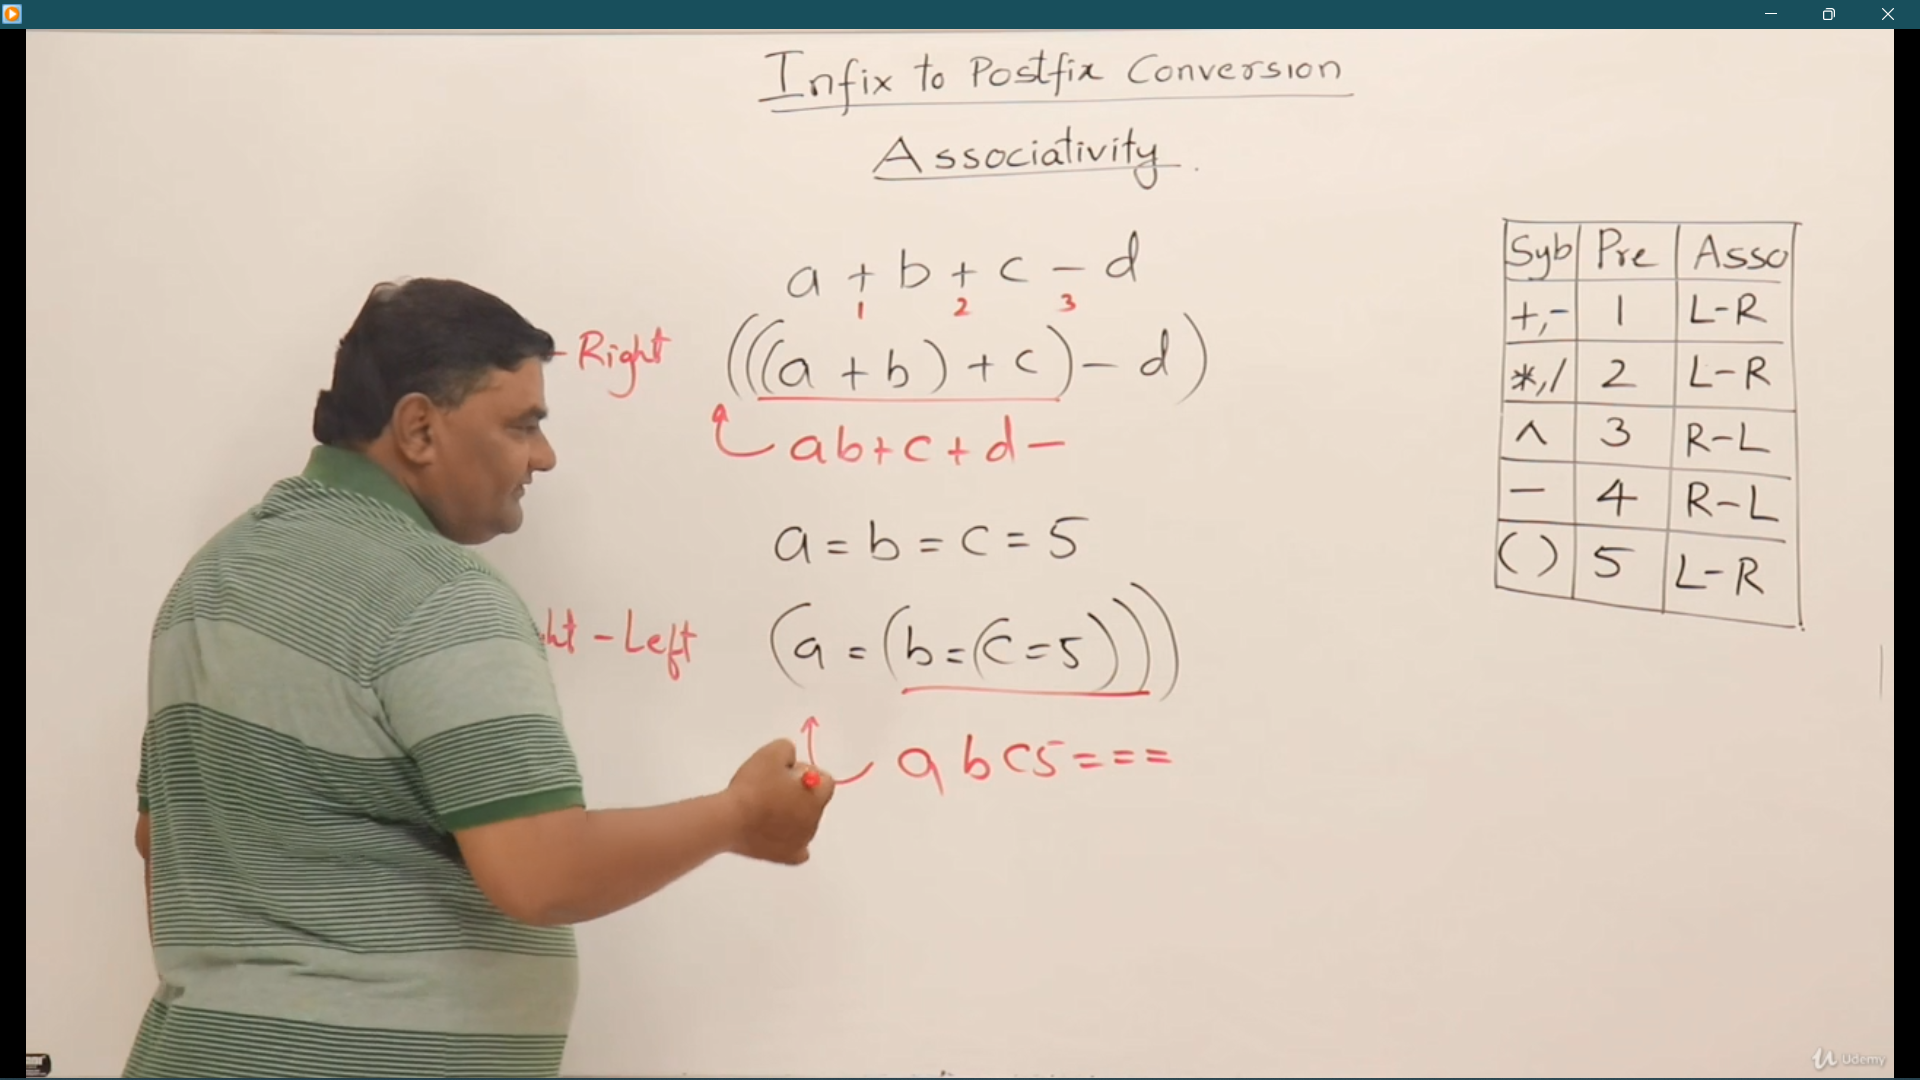 Infix to Postfix Conversion
Associativity.
a + b + c - d
1 2 3
- Right
(((a + b) + c) - d)
ab+c+d-
a = b = c = 5
- Left
(a = (b = (c = 5)))
abc5===
Syb Pre Asso
+,- 1 L-R
*,/ 2 L-R
^ 3 R-L
- 4 R-L
( ) 5 L-R
Udemy